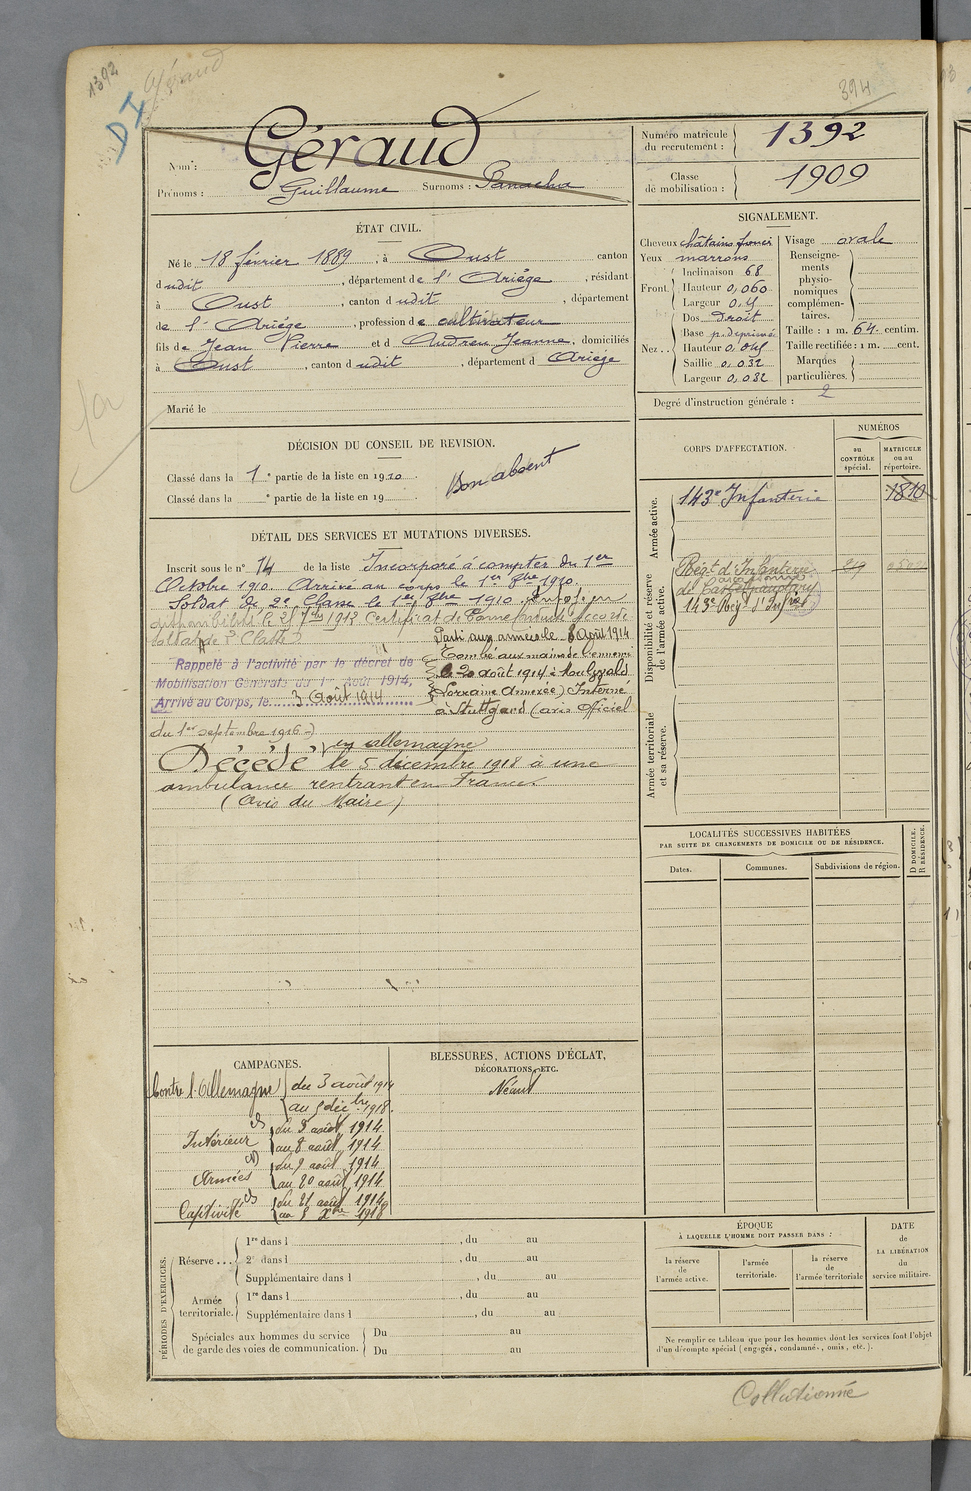 1392
Géraud
DI
394
Nom :
Géraud
Prénoms : Guillaume Surnoms : Panacha
Numéro matricule du recrutement : 1392
Classe de mobilisation : 1909
ÉTAT CIVIL.
Né le 18 février 1889, à Oust canton
dudit, département de l'Ariège, résidant
à Oust, canton dudit, département
de l'Ariège, profession de cultivateur
fils de Jean Pierre et d Andreu Jeanne, domiciliés
à Oust, canton dudit, département d Ariège
Marié le
SIGNALEMENT.
Cheveux châtains foncé
Yeux marrons
Front. Inclinaison 68
Hauteur 0,060
Largeur 0,
Nez.. Dos Droit
Base p. déprimé
Hauteur 0,045
Saillie 0,032
Largeur 0,032
Visage ovale
Renseignements physionomiques complémentaires.
Taille : 1 m. 64. centim.
Taille rectifiée : 1 m. cent.
Marques particulières.
Degré d'instruction générale : 2
DÉCISION DU CONSEIL DE REVISION.
Classé dans la 1re partie de la liste en 1910.
Classé dans la e partie de la liste en 19
Bon absent
CORPS D'AFFECTATION.
NUMÉROS
au CONTRÔLE spécial.
MATRICULE ou au répertoire.
Armée active.
143e Infanterie 1810
Disponibilité et réserve de l'armée active.
Régt d'Infanterie
de Castelnaudary
143e Rég. d'Infrie
Armée territoriale et sa réserve.
DÉTAIL DES SERVICES ET MUTATIONS DIVERSES.
Inscrit sous le n° 14 de la liste Incorporé à compter du 1er
Octobre 1910. Arrivé au corps le 1er 8bre 1910.
Soldat de 2e Classe le 1er 8bre 1910.
disponibilité le 25 7bre 1912 Certificat de bonne conduite accordé
soldat de 2e Classe
Rappelé à l'activité par le décret de
Mobilisation Générale du 1er Août 1914,
Arrivé au Corps, le 3 Août 1914
Parti aux armées le 8 Août 1914
Tombé aux mains de l'ennemi
le 20 août 1914 à
(Lorraine Annexée) Interné
à Stuttgard (avis officiel
du 1er septembre 1916)
en allemagne
Décédé le 5 décembre 1918 à une
ambulance rentrant en France
(Avis du Maire)
LOCALITÉS SUCCESSIVES HABITÉES
PAR SUITE DE CHANGEMENTS DE DOMICILE OU DE RÉSIDENCE.
Dates. Communes. Subdivisions de région. D DOMICILE. R RÉSIDENCE.
CAMPAGNES.
Contre l'Allemagne du 3 août 1914
au 5 décbre 1918.
Intérieur du 3 août 1914
au 8 août 1914
Armées du 9 août 1914
au 20 août 1914
Captivité du 21 août 1914
au 5 Xbre 1918
BLESSURES, ACTIONS D'ÉCLAT,
DÉCORATIONS, ETC.
Néant
PÉRIODES D'EXERCICES.
Réserve... 1re dans l , du au
2e dans l , du au
Supplémentaire dans l , du au
Armée territoriale. 1re dans l , du au
Supplémentaire dans l , du au
Spéciales aux hommes du service de garde des voies de communication. Du au
Du au
ÉPOQUE
À LAQUELLE L'HOMME DOIT PASSER DANS :
la réserve de l'armée active.
l'armée territoriale.
la réserve de l'armée territoriale
DATE DE LA LIBÉRATION du service militaire.
Ne remplir ce tableau que pour les hommes dont les services font l'objet
d'un décompte spécial (engagés, condamnés, omis, etc.).
Collationné